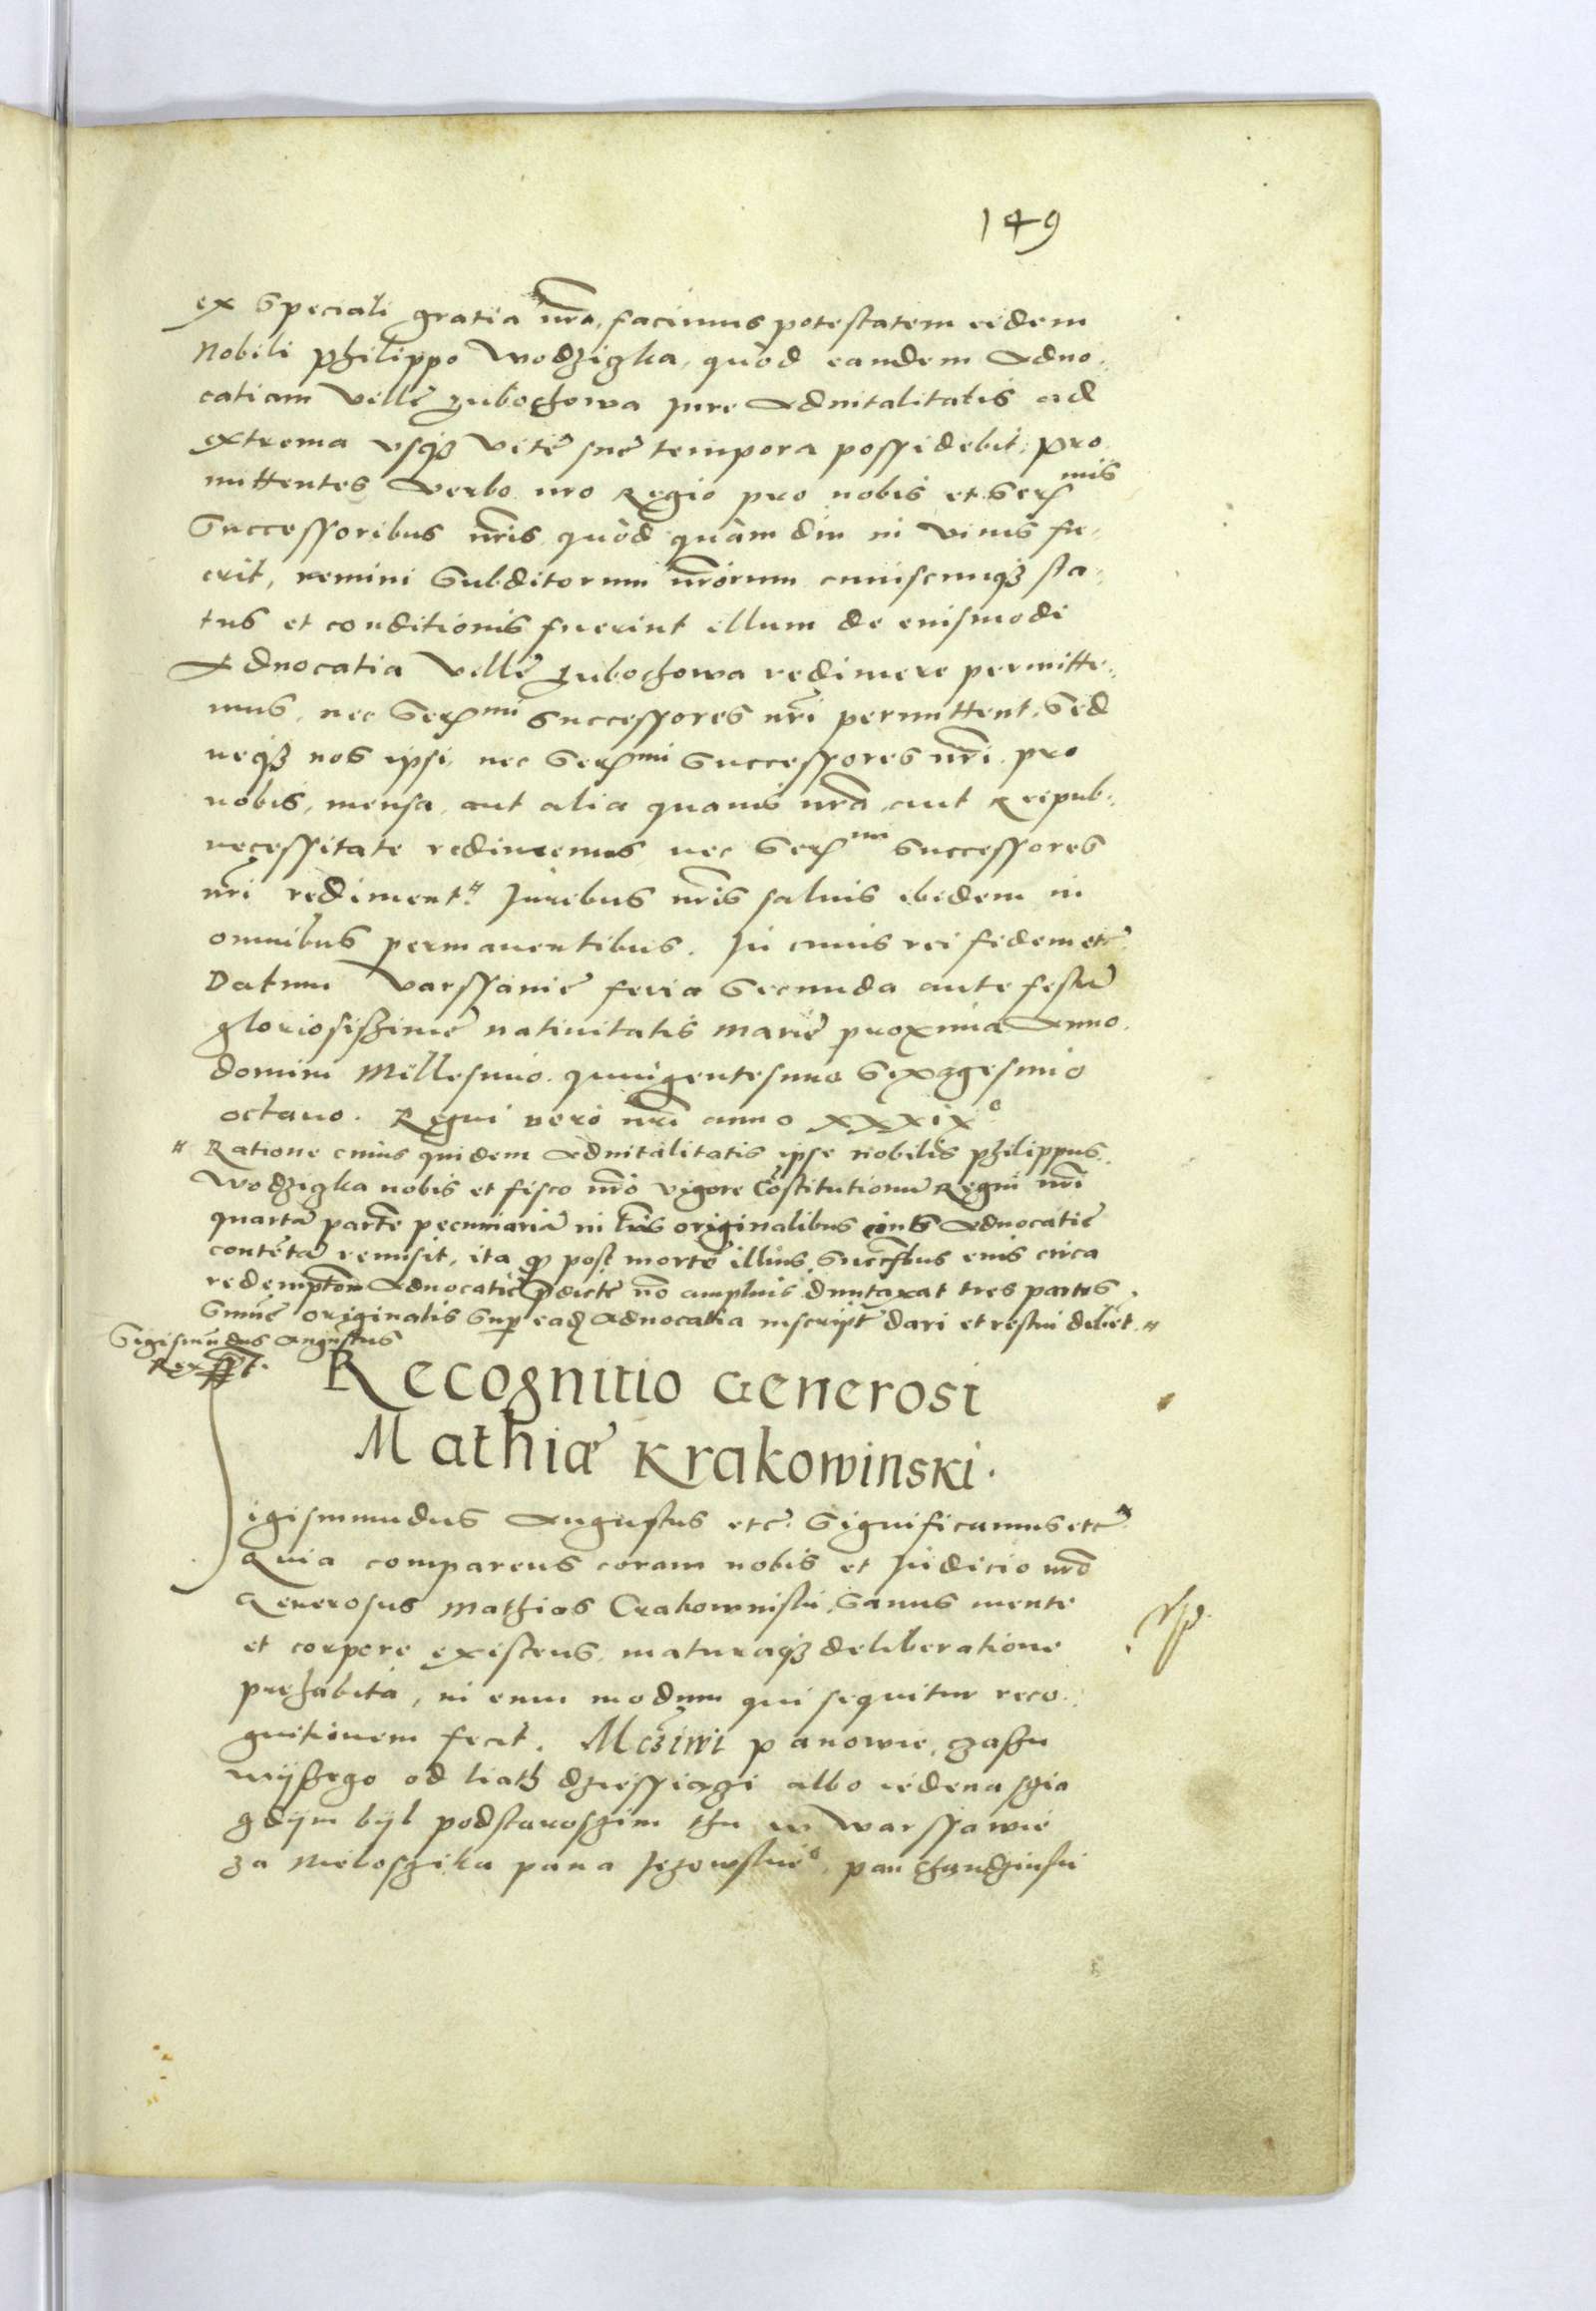 149
ex Speciali gratia nra, facimus potestatem eidem
Nobili Philippo Wodzizka, quòd eandem Aduo-
catiam Villę zubochowa Jure Aduitalitatis ad
extrema vsq3 Vitę suę tempora possidebit: Pro
mittentes Verbo nro Regio pro nobis et Ser mis
Successoribus nris quòd quàm diu in viuis fu-
erit, nemini Subditorum nrorum cuiuscunq3 sta-
tus et conditionis fuerint illum de eiusmodi
Aduocatia Villę zubochowa redimere permitte-
mus, nec Ser mi Successores nri permittent. Sed
neq3 nos ipsi, nec Ser mi Successores nri pro
nobis, mensa, aut alia quauis nra aut Reipub:
necessitate redimemus nec Ser mi Successores
nri rediment.# Juribus nris saluis ibidem in
omnibus permanentibus. In cuius rei fidem etc
Datum Varssauię feria Secunda ante festu
gloriosissimę natiuitatis Marię proxima Anno
domini Millesimo quingentesimo Sexagesimo
octauo. Regni vero nri anno XXXIX o
# Ratione cuius quidem Aduitalitatis ipse nobilis Philippus
Wodzizka nobis et fisco nro vigore Costitutionu Regni nri
quartā partē pecuniariā in lris originalibus eius Aduocatię
contētā remisit, ita q post mortē illius, Succbus eius circa
redemptōm Aduocatię pdictę nō amplius duntaxat tres partes
Sumę originalis Sup eadē Aduocatia inscriptę dari et restitui debet #
Sigismundus Augustus
Rex sspt.
Recognitio Generosi
Mathiæ Krakowinski.
igismundus Augustus etc. Significamus etc
Quia comparens coram nobis et Judicio nro
Generosus Mathias Crakowinski, Sanus mente
et corpore existens, maturaq3 deliberatione
prehabita, in eum modum qui sequitur reco-
gnitionem fecit. Mcziwi panowie, czassu
wyssego od liath dziessiaczi albo iedenaszcia
gdym byl podstaroszim thu w Warssawie
za nieboszika pana Jezowskie o, pan